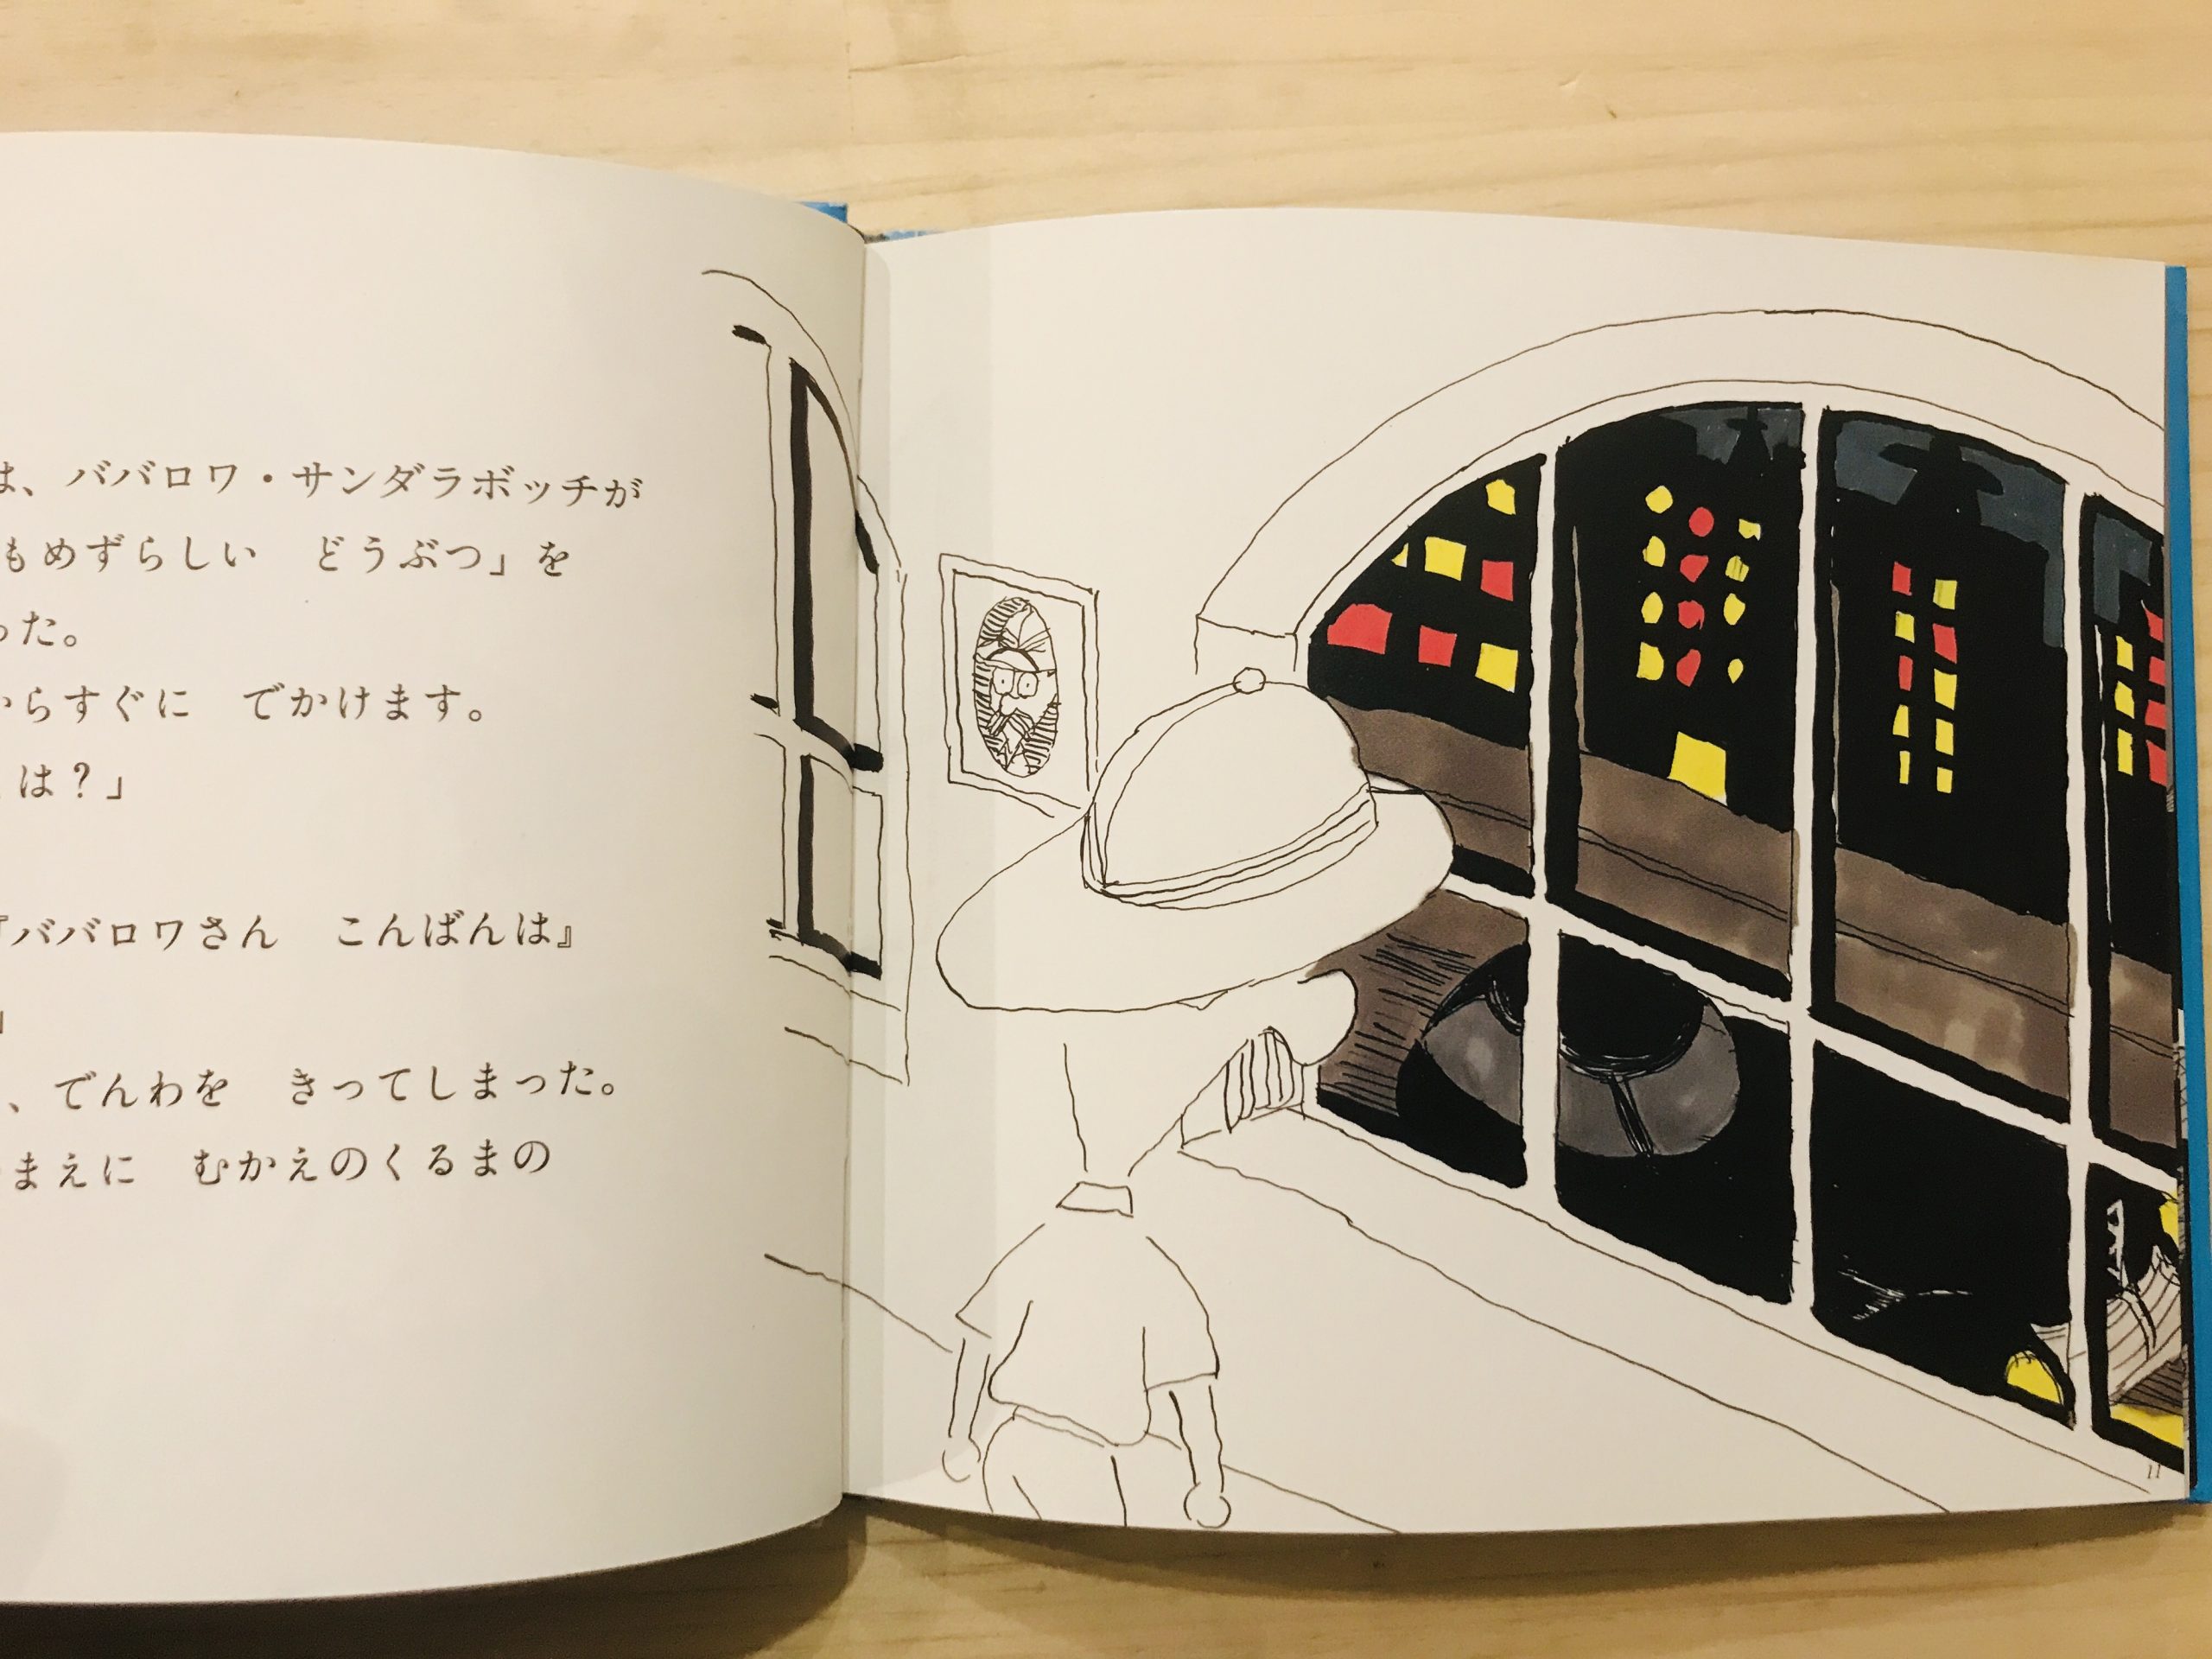 は、ババロワ・サンダラボッチが
もめずらしい　どうぶつ」を
った。
からすぐに　でかけます。
は？」
『ババロワさん　こんばんは』
」
、でんわを　きってしまった。
まえに　むかえのくるまの
11